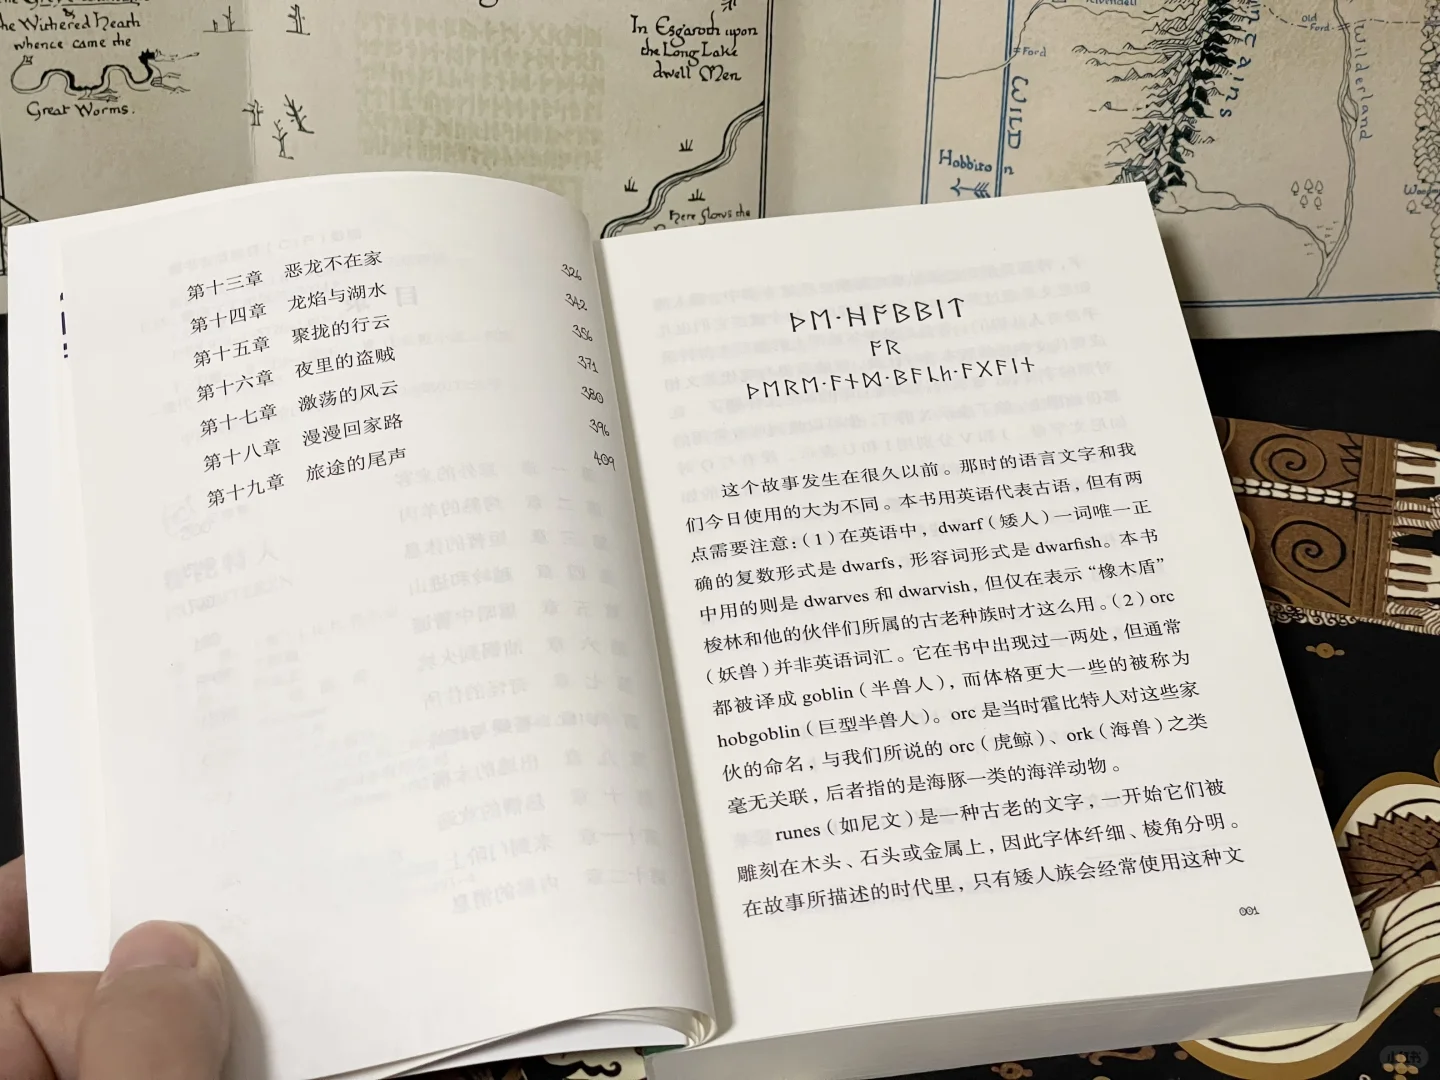 the Withered Heath
whence came the
Great Worms.
In Esgaroth upon
the Long Lake
dwell Men
Here flows the
Ford
WILD
Hobbiton
Old
Ford
Wilderland
第十三章 恶龙不在家 326
第十四章 龙焰与湖水 342
第十五章 聚拢的行云 356
第十六章 夜里的盗贼 371
第十七章 激荡的风云 380
第十八章 漫漫回家路 396
第十九章 旅途的尾声 409
ᚦᛖ·ᚻᚩᛒᛒᛁᛏ
ᚩᚱ
ᚦᛖᚱᛖ·ᚪᚾᛞ·ᛒᚪᚳᛋ·ᚪᚷᚪᛁᚾ
这个故事发生在很久以前。那时的语言文字和我
们今日使用的大为不同。本书用英语代表古语，但有两
点需要注意：（1）在英语中，dwarf（矮人）一词唯一正
确的复数形式是 dwarfs，形容词形式是 dwarfish。本书
中用的则是 dwarves 和 dwarvish，但仅在表示“橡木盾”
梭林和他的伙伴们所属的古老种族时才这么用。（2）orc
（妖兽）并非英语词汇。它在书中出现过一两处，但通常
都被译成 goblin（半兽人），而体格更大一些的被称为
hobgoblin（巨型半兽人）。orc 是当时霍比特人对这些家
伙的命名，与我们所说的 orc（虎鲸）、ork（海兽）之类
毫无关联，后者指的是海豚一类的海洋动物。
runes（如尼文）是一种古老的文字，一开始它们被
雕刻在木头、石头或金属上，因此字体纤细、棱角分明。
在故事所描述的时代里，只有矮人族会经常使用这种文
001